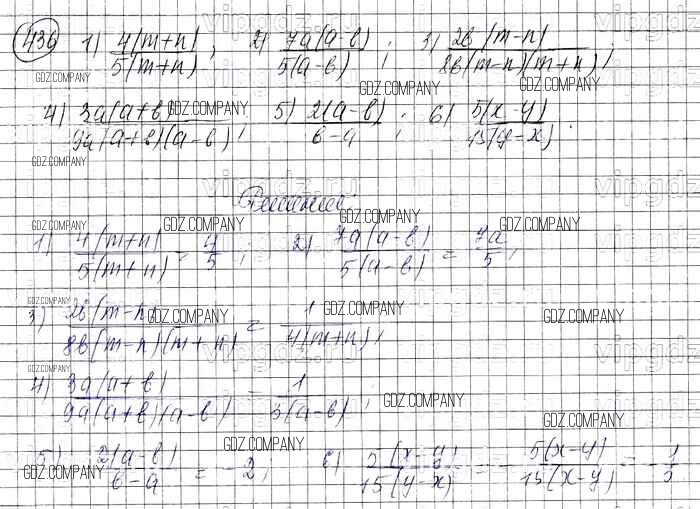 436 1) 4(m+n)/5(m+n); 2) 7a(a-b)/5(a-b); 3) 2b(m-n)/8b(m-n)(m+n);
4) 3a(a+b)/9a(a+b)(a-b); 5) 2(a-b)/b-a; 6) 5(x-y)/15(y-x).
Решение
1) 4(m+n)/5(m+n) = 4/5; 2) 7a(a-b)/5(a-b) = 7a/5;
3) 2b(m-n)/8b(m-n)(m+n) = 1/4(m+n);
4) 3a(a+b)/9a(a+b)(a-b) = 1/3(a-b);
5) 2(a-b)/b-a = -2; 6) 5(x-y)/15(y-x) = -5(x-y)/15(x-y) = -1/3
GDZ.COMPANY
vipgdz.ru